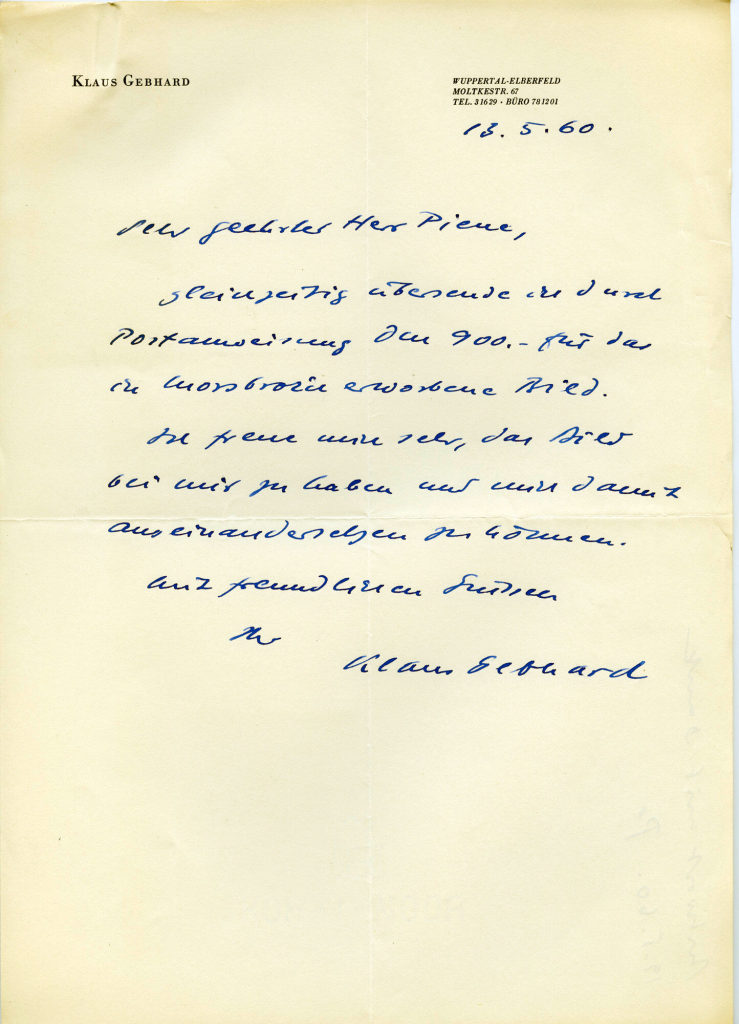 KLAUS GEBHARD
WUPPERTAL-ELBERFELD
MOLTKESTR. 67
TEL. 31629 · BÜRO 781201
13. 5. 60.
Sehr geehrter Herr Piene,
gleichzeitig übersende ich durch
Postanweisung DM 900.- für das
in Morsbroich erworbene Bild.
Ich freue mich sehr, das Bild
bei mir zu haben und mich damit
auseinandersetzen zu können.
Mit freundlichen Grüssen
Ihr
Klaus Gebhard